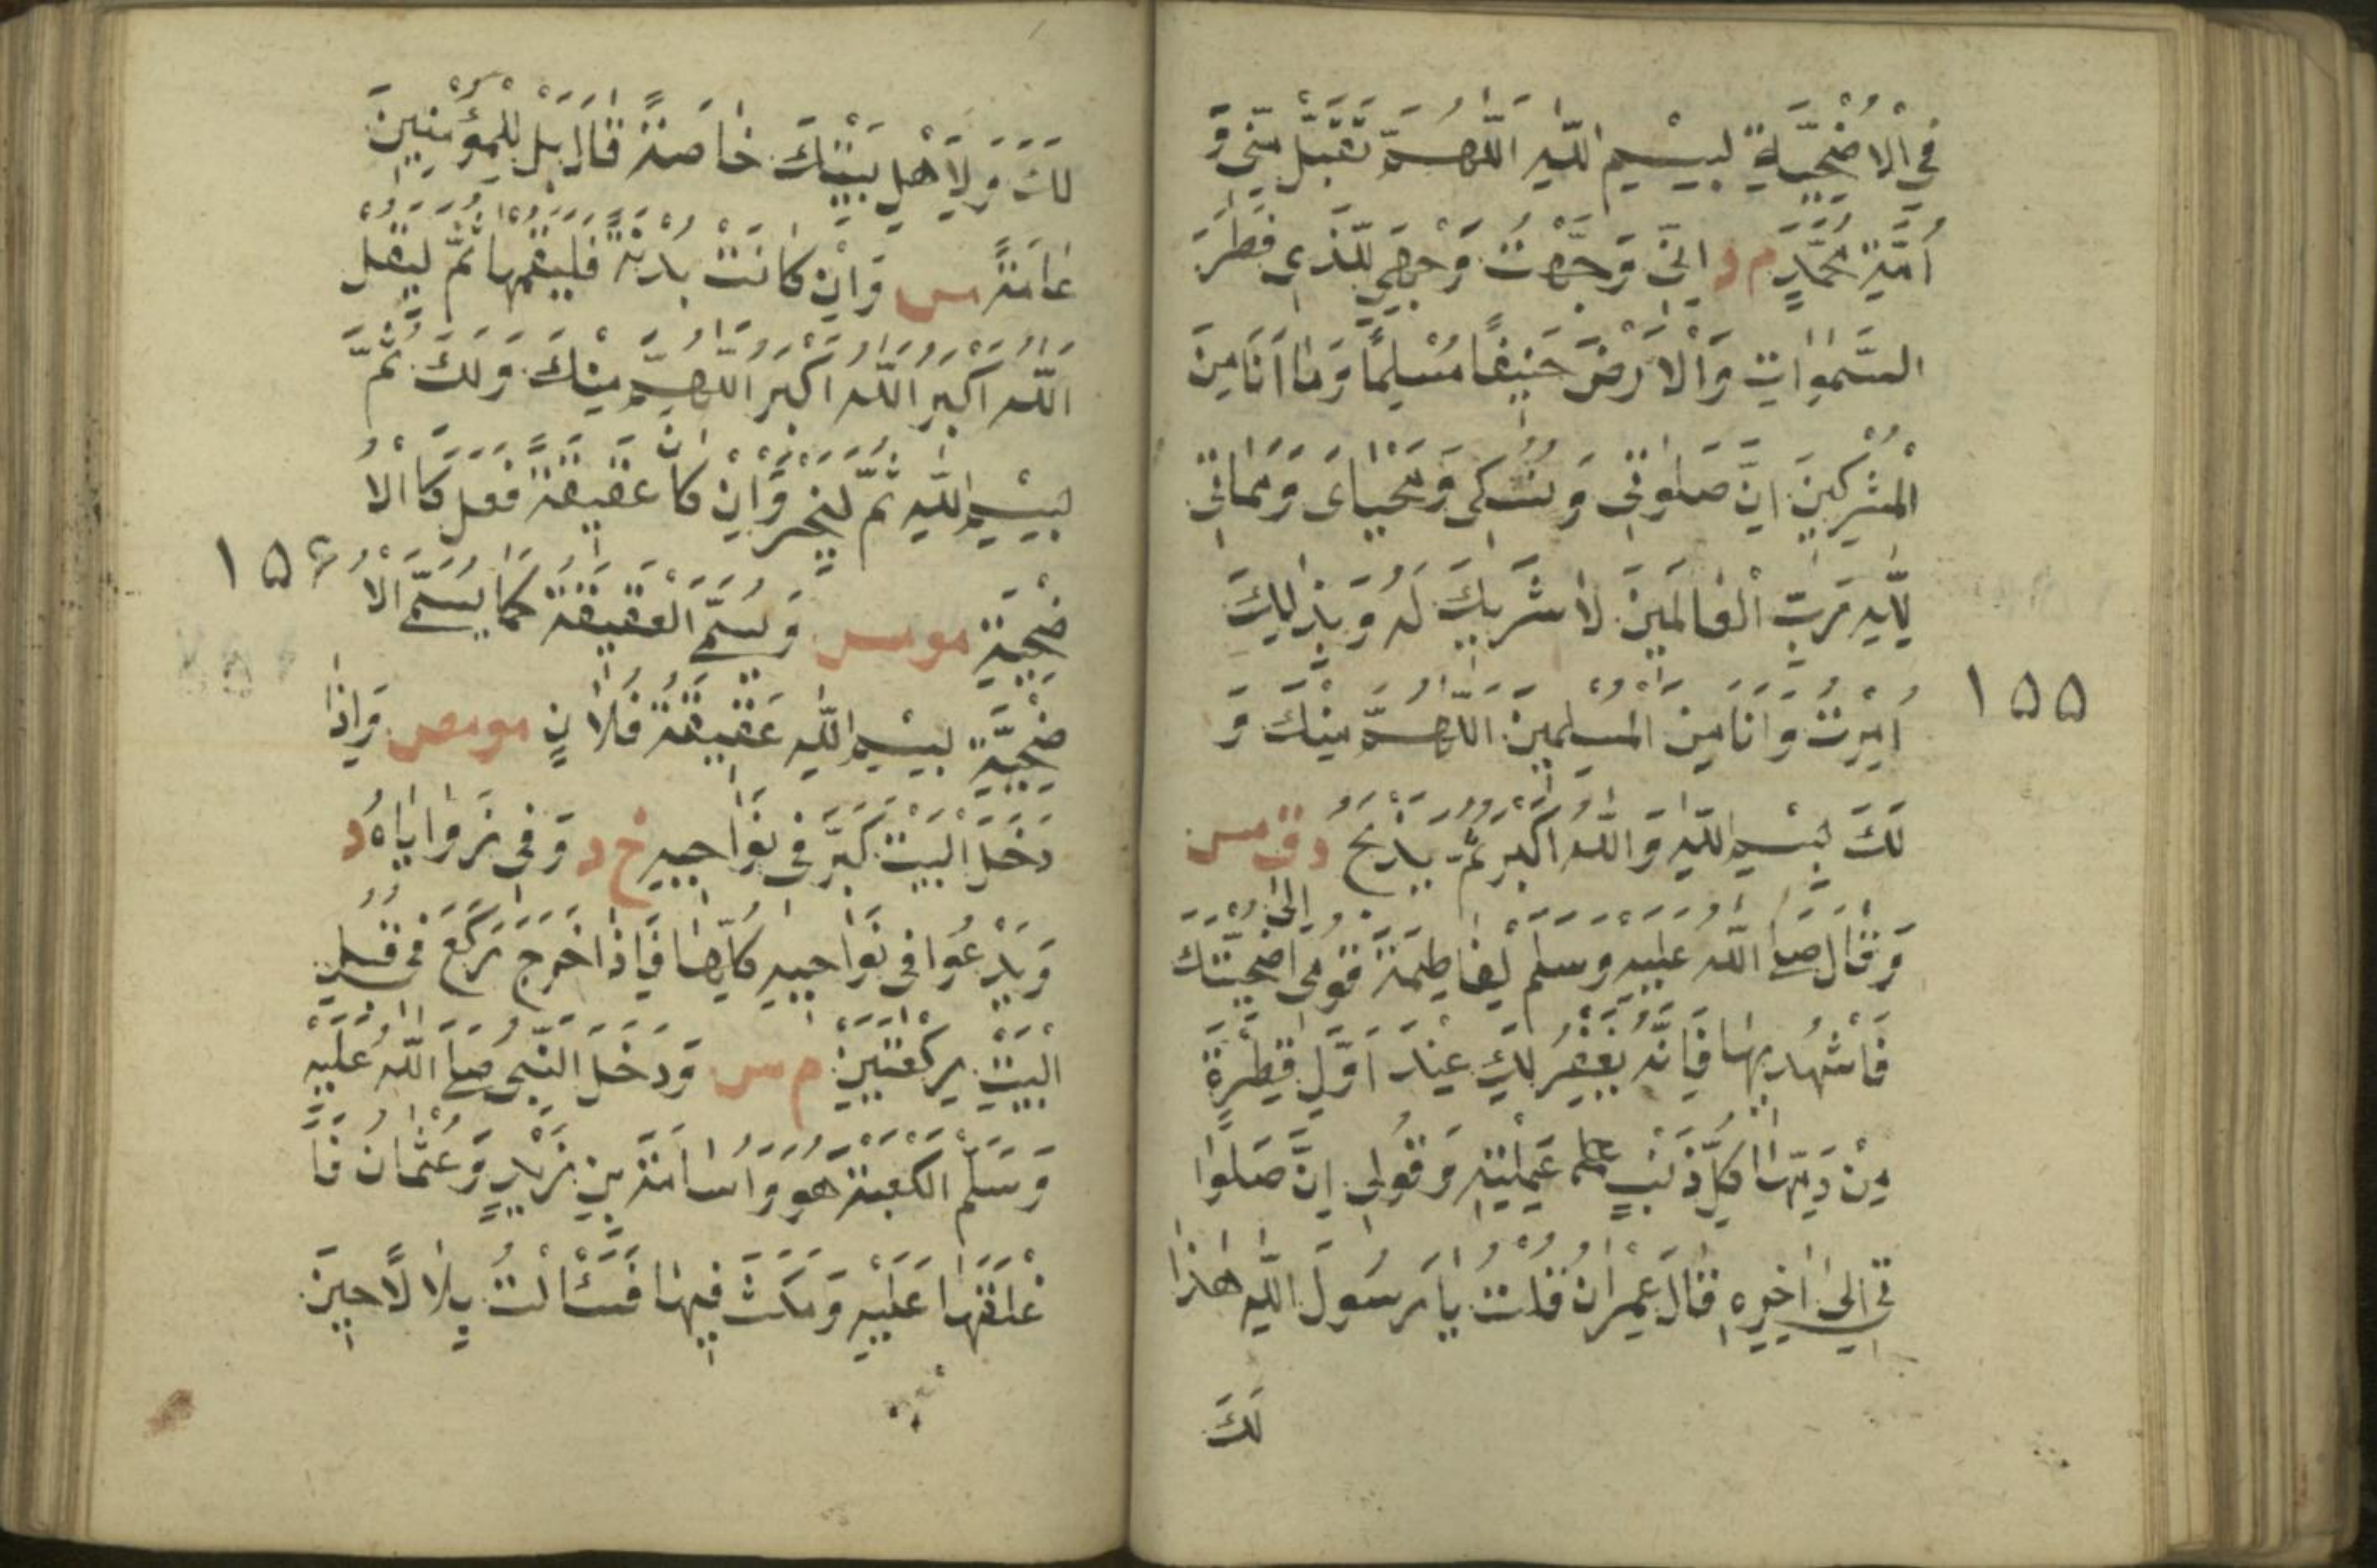 فِي الْاُضْحِيَّةِ بِسْمِ اللّٰهِ اَللّٰهُمَّ تَقَبَّلْ مِنِّي وَ
اُمَّةِ مُحَمَّدٍ م د اِنِّي وَجَّهْتُ وَجْهِيَ لِلَّذِي فَطَرَ
السَّمٰوَاتِ وَالْاَرْضَ حَنِيفًا مُسْلِمًا وَمَا اَنَا مِنَ
الْمُشْرِكِينَ اِنَّ صَلٰوتِي وَنُسُكِي وَمَحْيَايَ وَمَمَاتِي
لِلّٰهِ رَبِّ الْعَالَمِينَ لَا شَرِيكَ لَهُ وَبِذٰلِكَ
١٥٥
اُمِرْتُ وَاَنَا مِنَ الْمُسْلِمِينَ اَللّٰهُمَّ مِنْكَ وَ
لَكَ بِسْمِ اللّٰهِ وَاللّٰهُ اَكْبَرُ ثُمَّ يَذْبَحُ د ق مس
وَقَالَ صَلَّى اللّٰهُ عَلَيْهِ وَسَلَّمَ لِفَاطِمَةَ قُومِي اِلٰى اُضْحِيَّتِكِ
فَاشْهَدِيهَا فَاِنَّهُ يُغْفَرُ لَكِ عِنْدَ اَوَّلِ قَطْرَةٍ
مِنْ دَمِهَا كُلُّ ذَنْبٍ عَمِلْتِهِ وَقُولِي اِنَّ صَلٰوا
تِي اِلٰى اٰخِرِهِ قَالَ عِمْرَانُ قُلْتُ يَا رَسُولَ اللّٰهِ هٰذَا
لَكَ
لَكَ وَلِاَهْلِ بَيْتِكَ خَاصَّةً قَالَ بَلْ لِلْمُؤْمِنِينَ
عَامَّةً مس وَاِنْ كَانَتْ بَدَنَةً فَلْيُقِمْهَا ثُمَّ لْيَقُلْ
اَللّٰهُ اَكْبَرُ اَللّٰهُ اَكْبَرُ اَللّٰهُمَّ مِنْكَ وَلَكَ ثُمَّ
بِسْمِ اللّٰهِ ثُمَّ لْيَنْحَرْ وَاِنْ كَانَ عَقِيقَةً فَعَلَ كَالْاُ
١٥٦
ضْحِيَّةِ مومس وَيُسَمِّي الْعَقِيقَةَ كَمَا يُسَمِّي الْاُ
ضْحِيَّةَ بِسْمِ اللّٰهِ عَقِيقَةُ فُلَانٍ مومص وَاِذَا
دَخَلَ الْبَيْتَ كَبَّرَ فِي نَوَاحِيهِ خ د وَفِي زَوَايَاهُ د
وَيَدْعُوا فِي نَوَاحِيهِ كُلِّهَا فَاِذَا خَرَجَ رَكَعَ فِي قُبُلِ
الْبَيْتِ رَكْعَتَيْنِ م س وَدَخَلَ النَّبِيُّ صَلَّى اللّٰهُ عَلَيْهِ
وَسَلَّمَ الْكَعْبَةَ هُوَ وَاُسَامَةُ بْنُ زَيْدٍ وَعُثْمَانُ فَاَ
غْلَقَهَا عَلَيْهِ وَمَكَثَ فِيهَا فَسَئَالْتُ بِلَالًا حِينَ